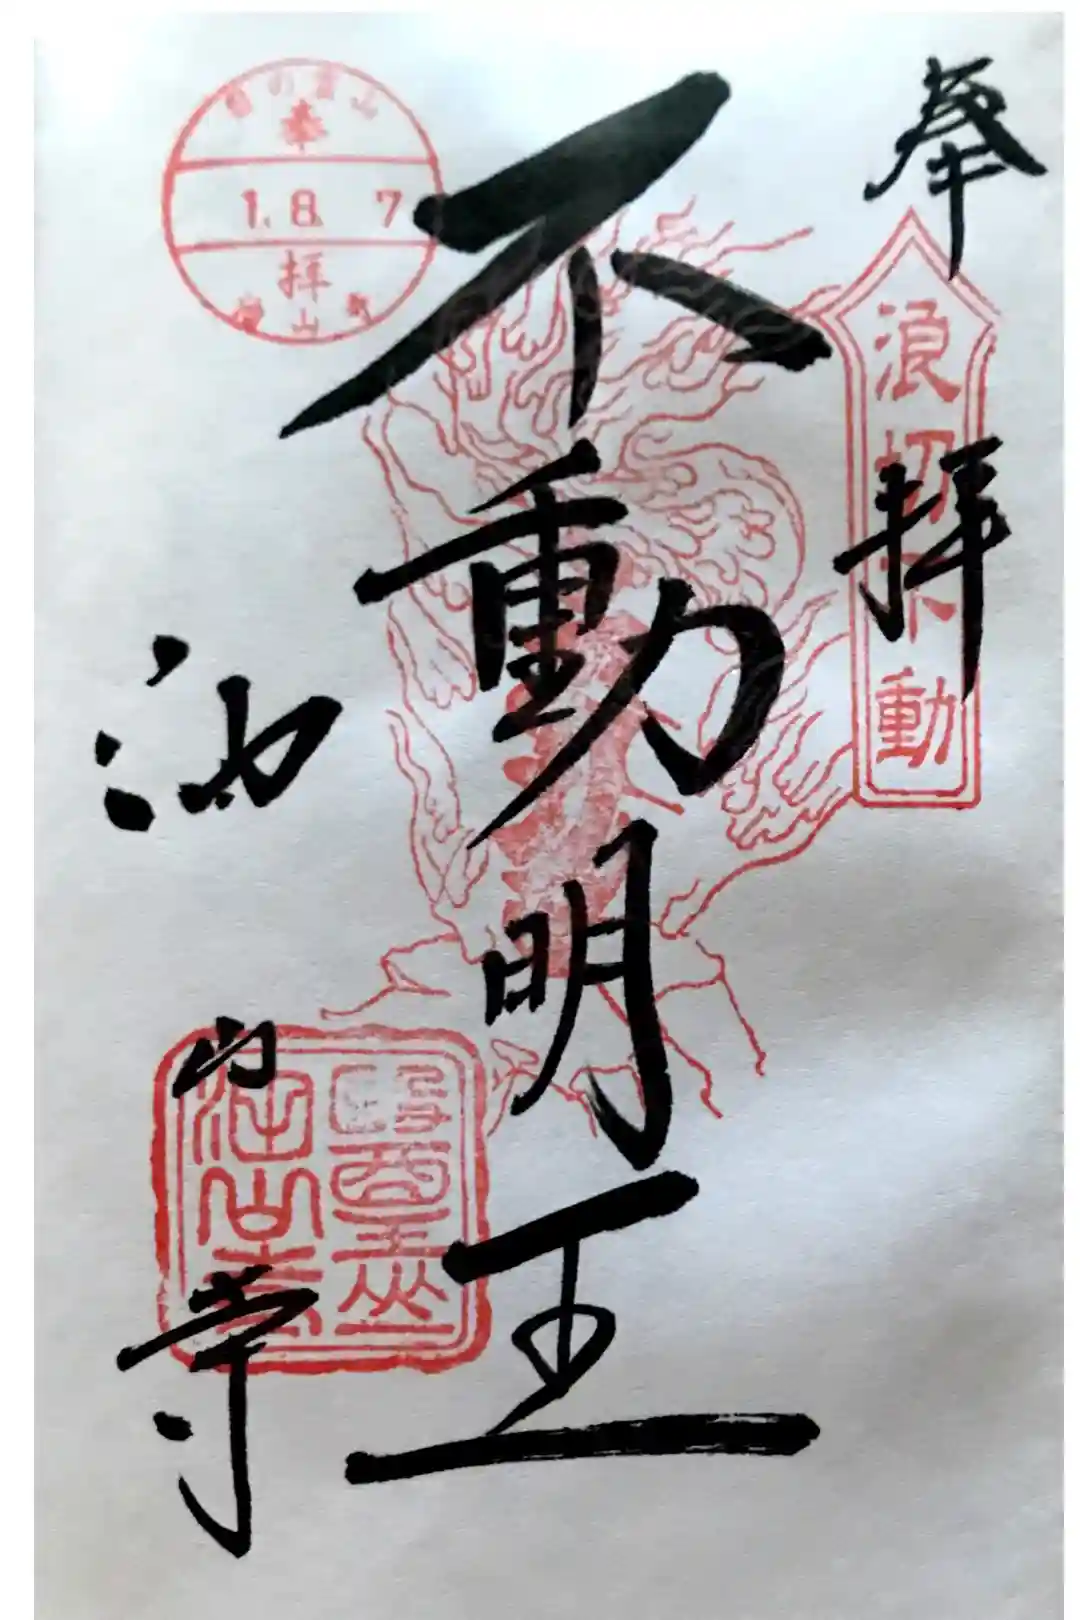 奉拝
浪切不動
不動明王
奉
1.8. 7
拝
池山寺